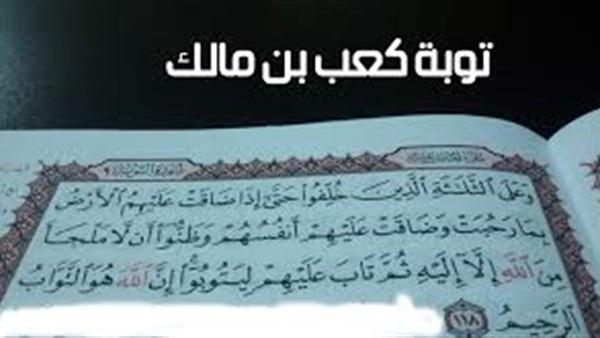 توبة كعب بن مالك
وَعَلَى ٱلثَّلَٰثَةِ ٱلَّذِينَ خُلِّفُوا۟ حَتَّىٰٓ إِذَا ضَاقَتْ عَلَيْهِمُ ٱلْأَرْضُ
بِمَا رَحُبَتْ وَضَاقَتْ عَلَيْهِمْ أَنفُسُهُمْ وَظَنُّوٓا۟ أَن لَّا مَلْجَأَ
مِنَ ٱللَّهِ إِلَّآ إِلَيْهِ ثُمَّ تَابَ عَلَيْهِمْ لِيَتُوبُوٓا۟ إِنَّ ٱللَّهَ هُوَ ٱلتَّوَّابُ
ٱلرَّحِيمُ ١١٨